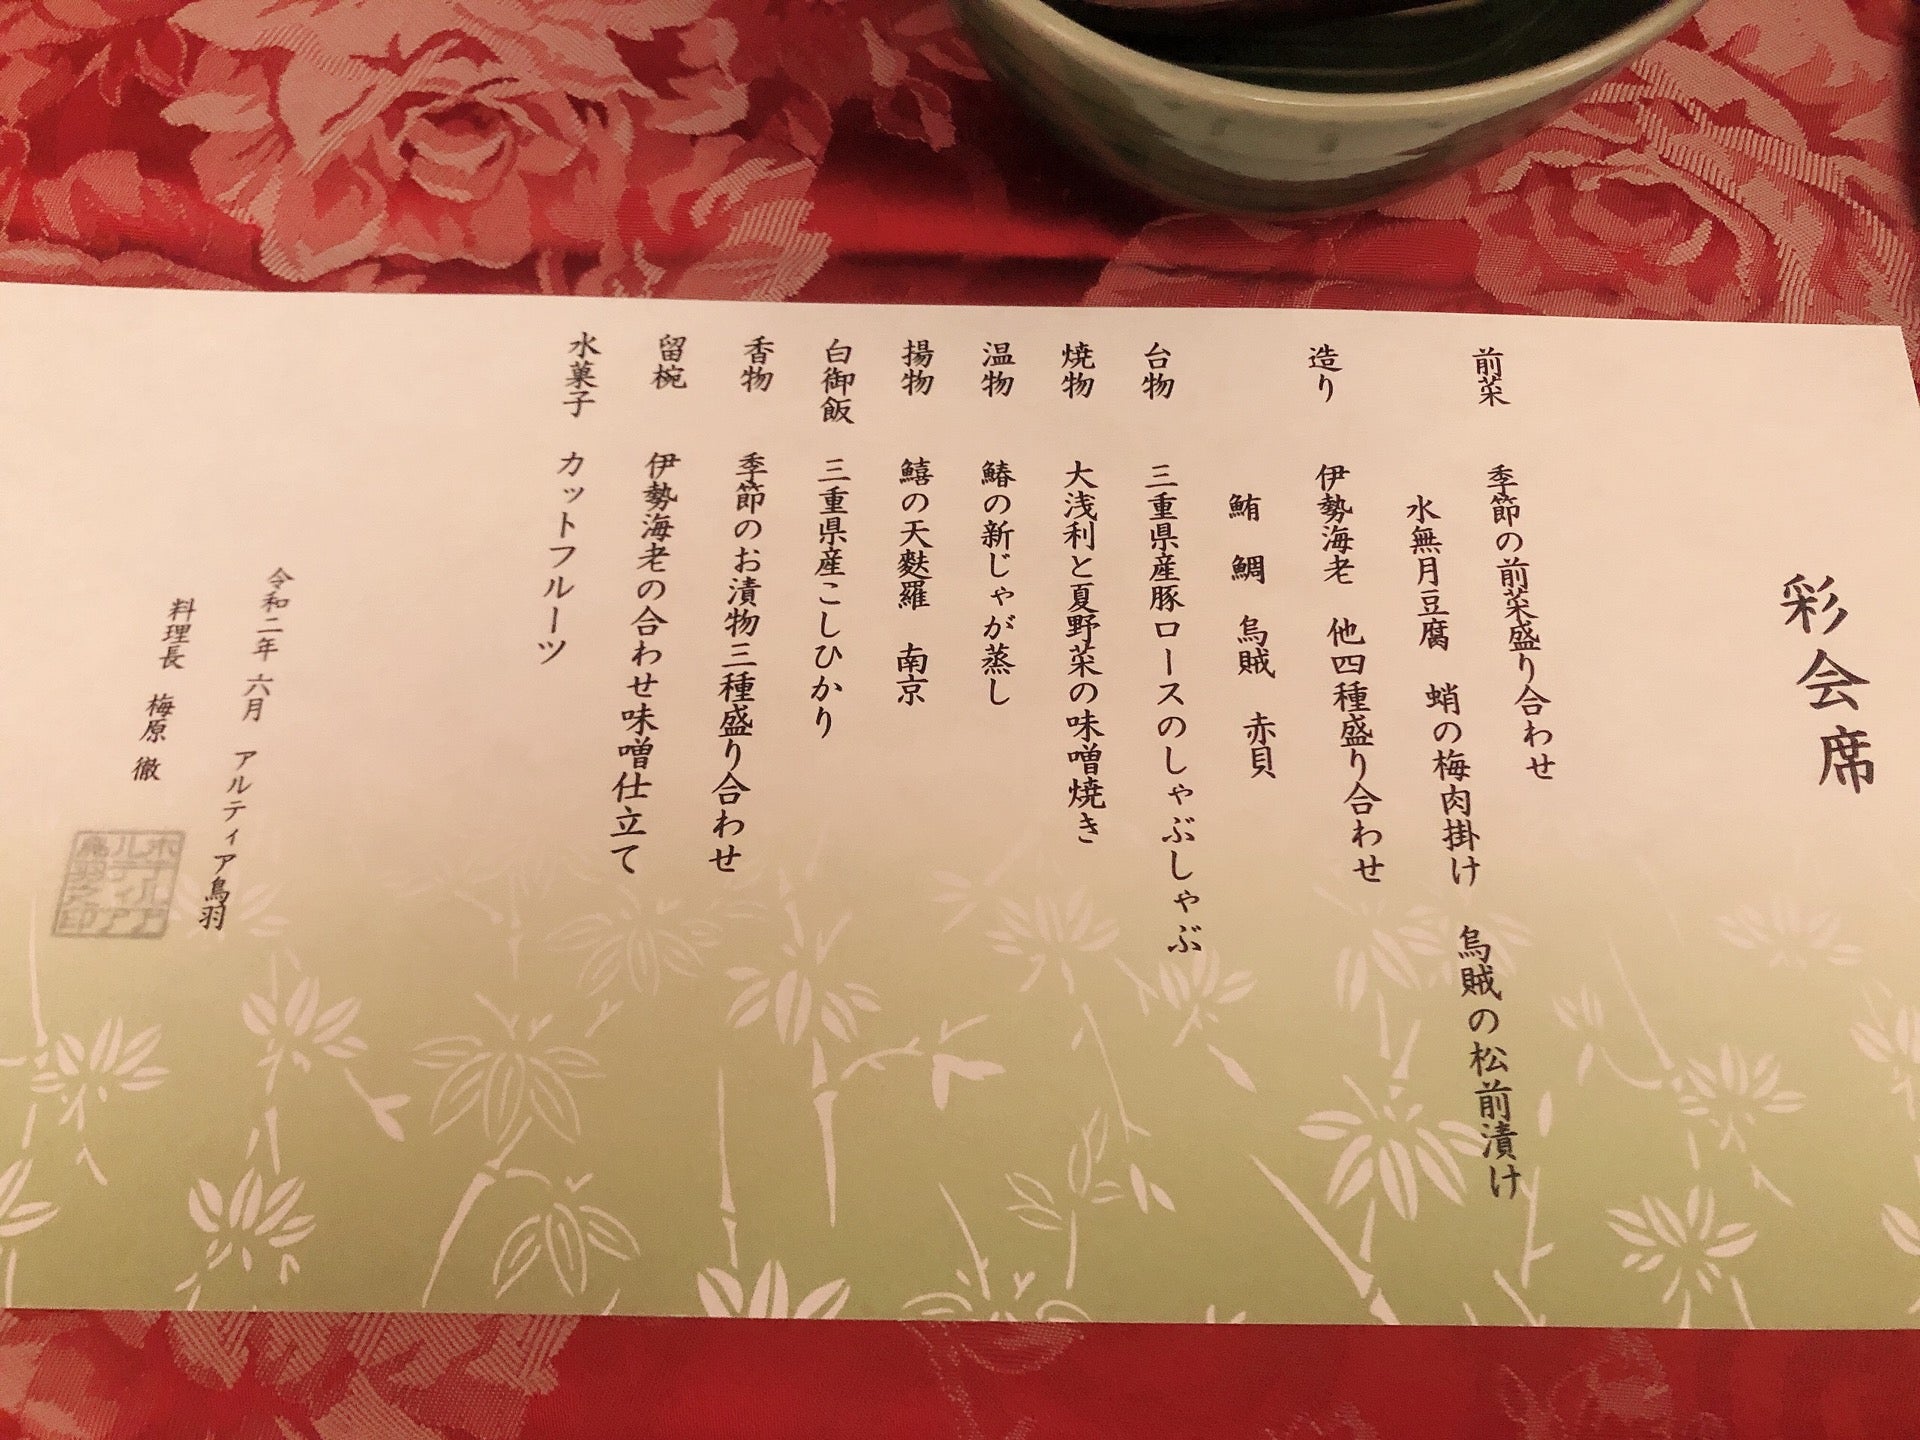 彩会席
前菜 季節の前菜盛り合わせ
水無月豆腐 蛸の梅肉掛け 烏賊の松前漬け
造り 伊勢海老 他四種盛り合わせ
鮪 鯛 烏賊 赤貝
台物 三重県産豚ロースのしゃぶしゃぶ
焼物 大浅利と夏野菜の味噌焼き
温物 鰆の新じゃが蒸し
揚物 鱚の天麩羅 南京
白御飯 三重県産こしひかり
香物 季節のお漬物三種盛り合わせ
留椀 伊勢海老の合わせ味噌仕立て
水菓子 カットフルーツ
令和二年 六月 アルティア鳥羽
料理長 梅原 徹
ホテルア
ルティア
鳥羽之印